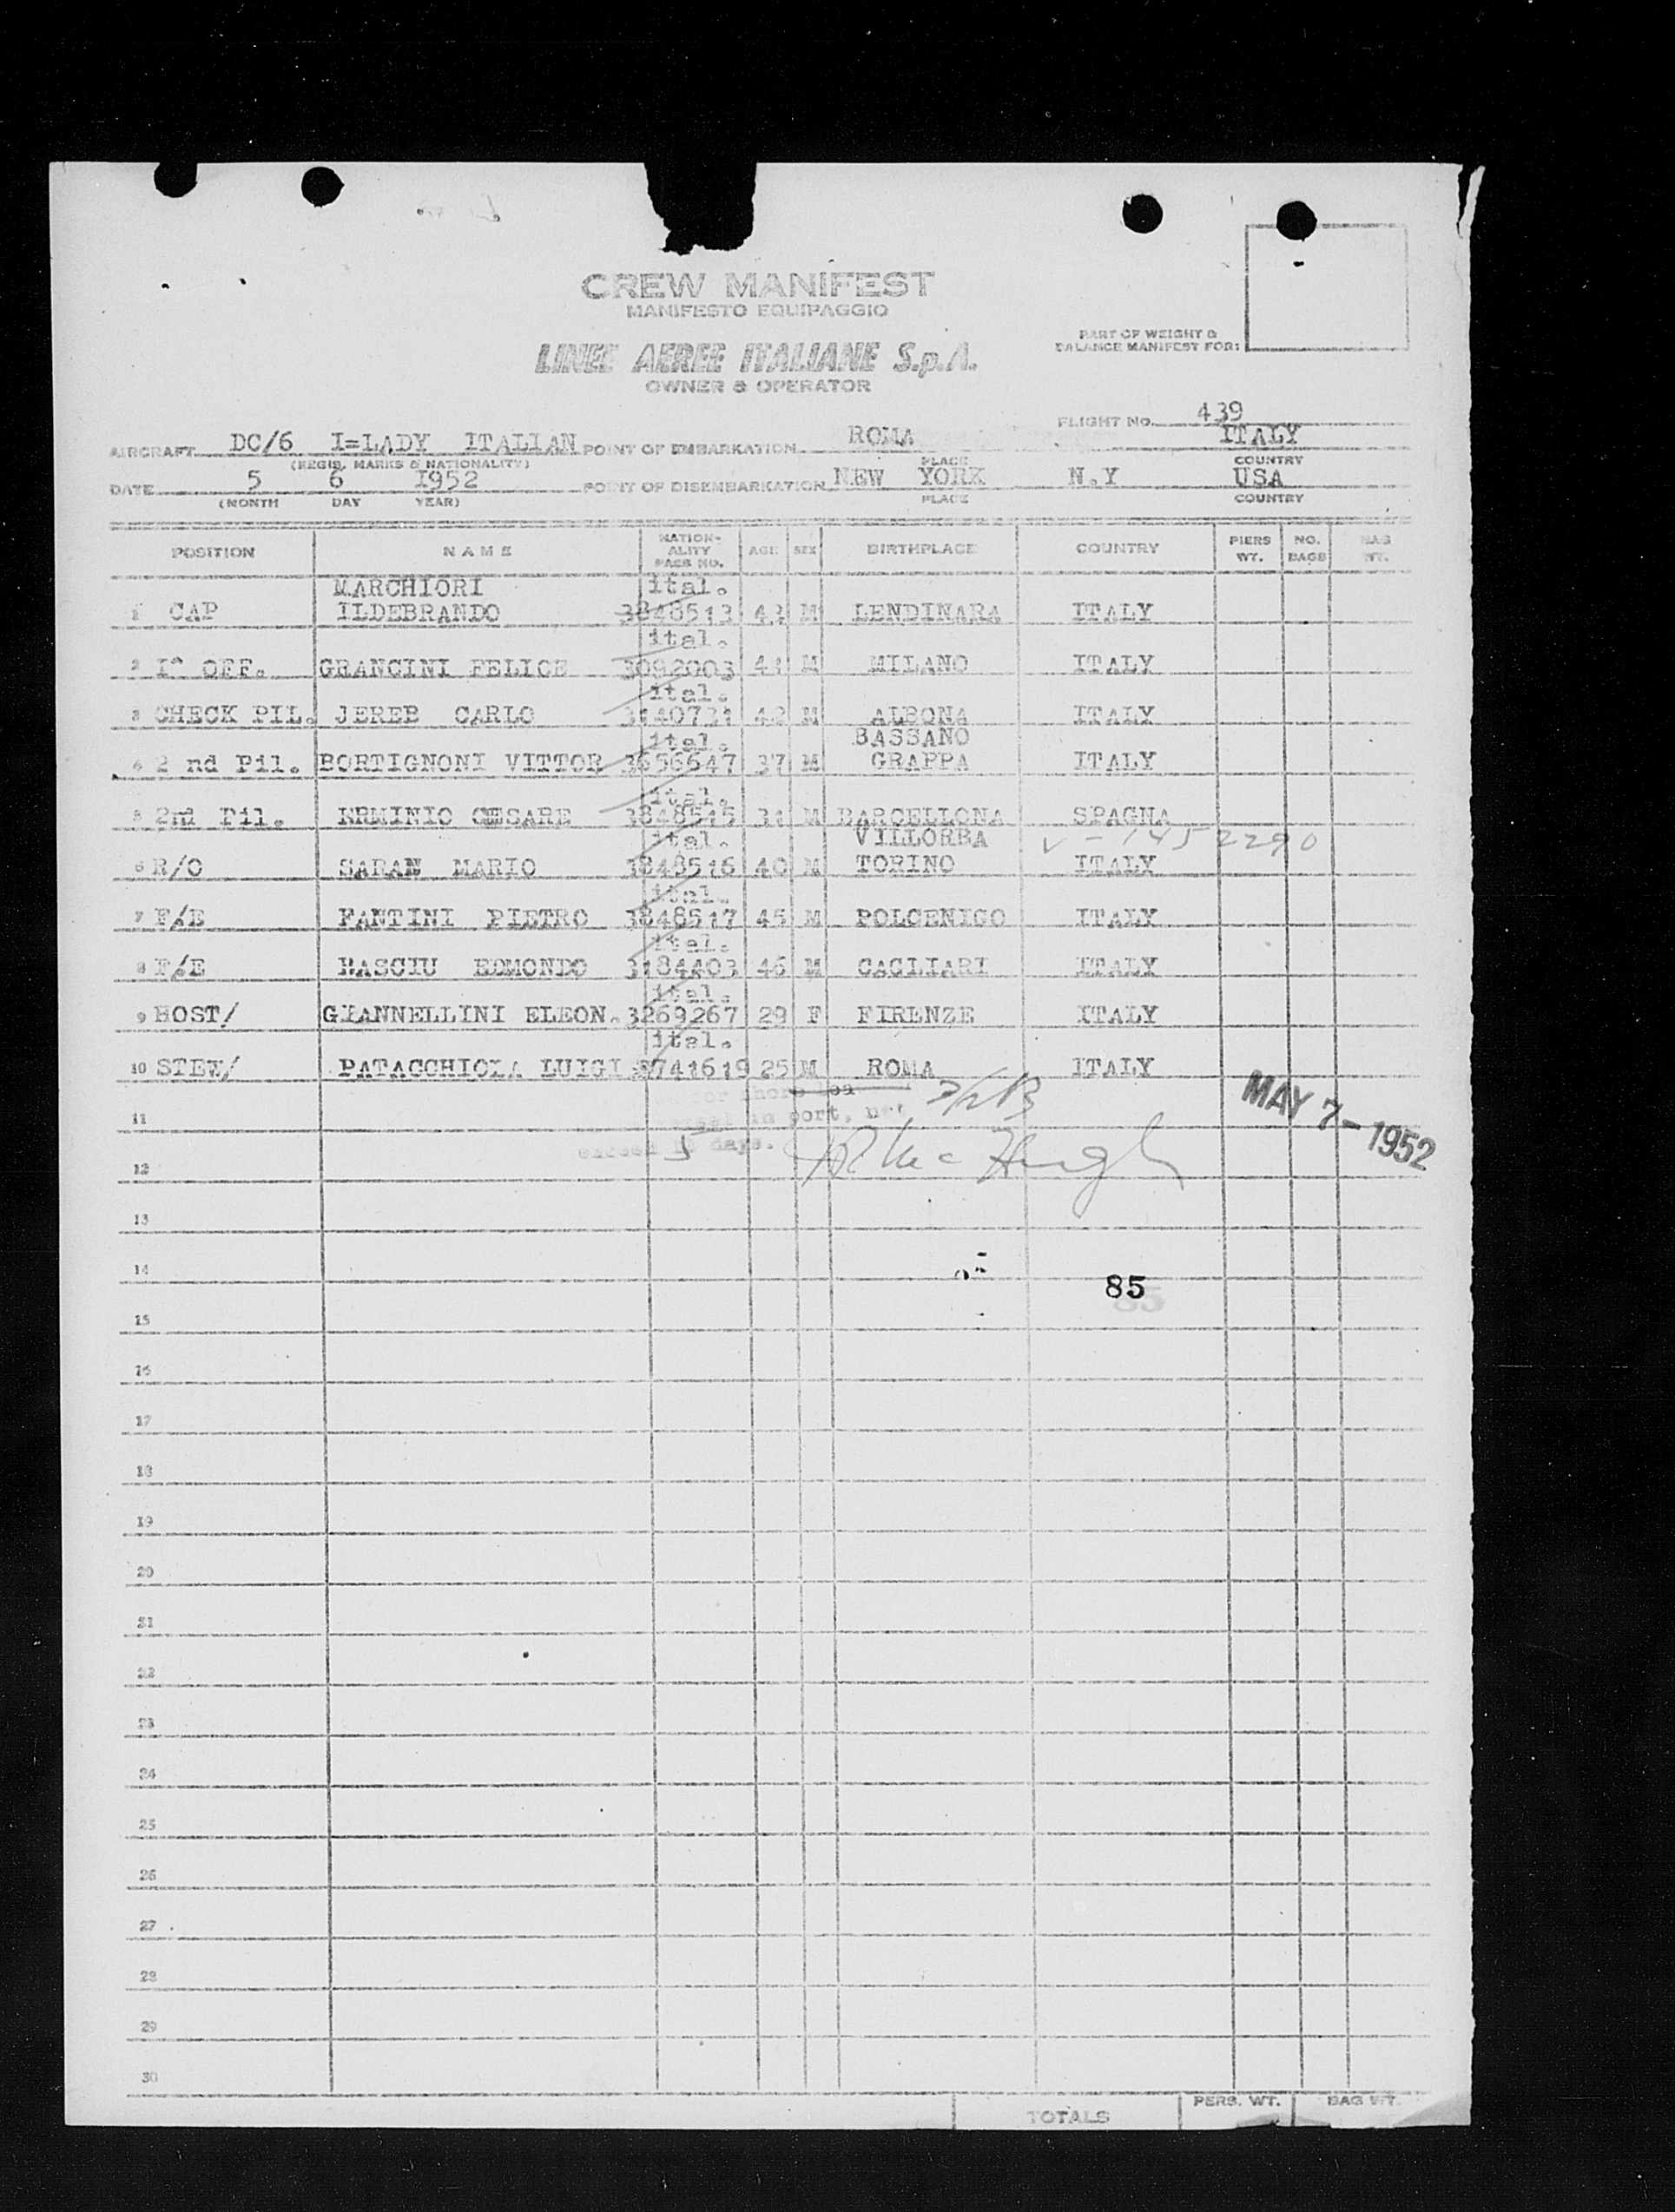 CREW MANIFEST
MANIFESTO EQUIPAGGIO
PART OF WEIGHT &
BALANCE MANIFEST FOR:
LINEE AEREE ITALIANE S.p.A.
OWNER & OPERATOR
FLIGHT NO. 439
AIRCRAFT DC/6 I=LADY ITALIAN POINT OF EMBARKATION ROMA ITALY
(REGIS. MARKS & NATIONALITY) PLACE COUNTRY
DATE 5 6 1952 POINT OF DISEMBARKATION NEW YORK N.Y USA
(MONTH DAY YEAR) PLACE COUNTRY
POSITION NAME NATION-ALITY PASS NO. AGE SEX BIRTHPLACE COUNTRY PIERS WT. NO. BAGS BAG WT.
MARCHIORI ital.
1 CAP ILDEBRANDO 3848513 43 M LENDINARA ITALY
ital.
2 I° OFF. GRANCINI FELICE 3092003 41 M MILANO ITALY
ital.
3 CHECK PIL. JEREB CARLO 3140731 42 M ALBONA ITALY
ital. BASSANO
4 2 nd Pil. BORTIGNONI VITTOR 3656647 37 M GRAPPA ITALY
ital.
5 2nd Pil. ERMINIO CESARE 3848515 31 M BARCELLONA SPAGNA
ital. VILLORBA V-1452290
6 R/O SARAN MARIO 3848516 40 M TORINO ITALY
ital.
7 F/E FANTINI PIETRO 3848517 45 M POLCENIGO ITALY
ital.
8 F/E BASCIU EDMONDO 3184403 46 M CAGLIARI ITALY
ital.
9 HOST/ GIANNELLINI ELEON. 3269267 29 F FIRENZE ITALY
ital.
10 STEW/ PATACCHIOLA LUIGI 3741619 25 M ROMA ITALY
for shore
MAY 7-1952
11 in port, not
exceed 5 days.
12
13
14
85
15
16
17
18
19
20
21
22
23
24
25
26
27
28
29
30
TOTALS PERS. WT. BAG WT.